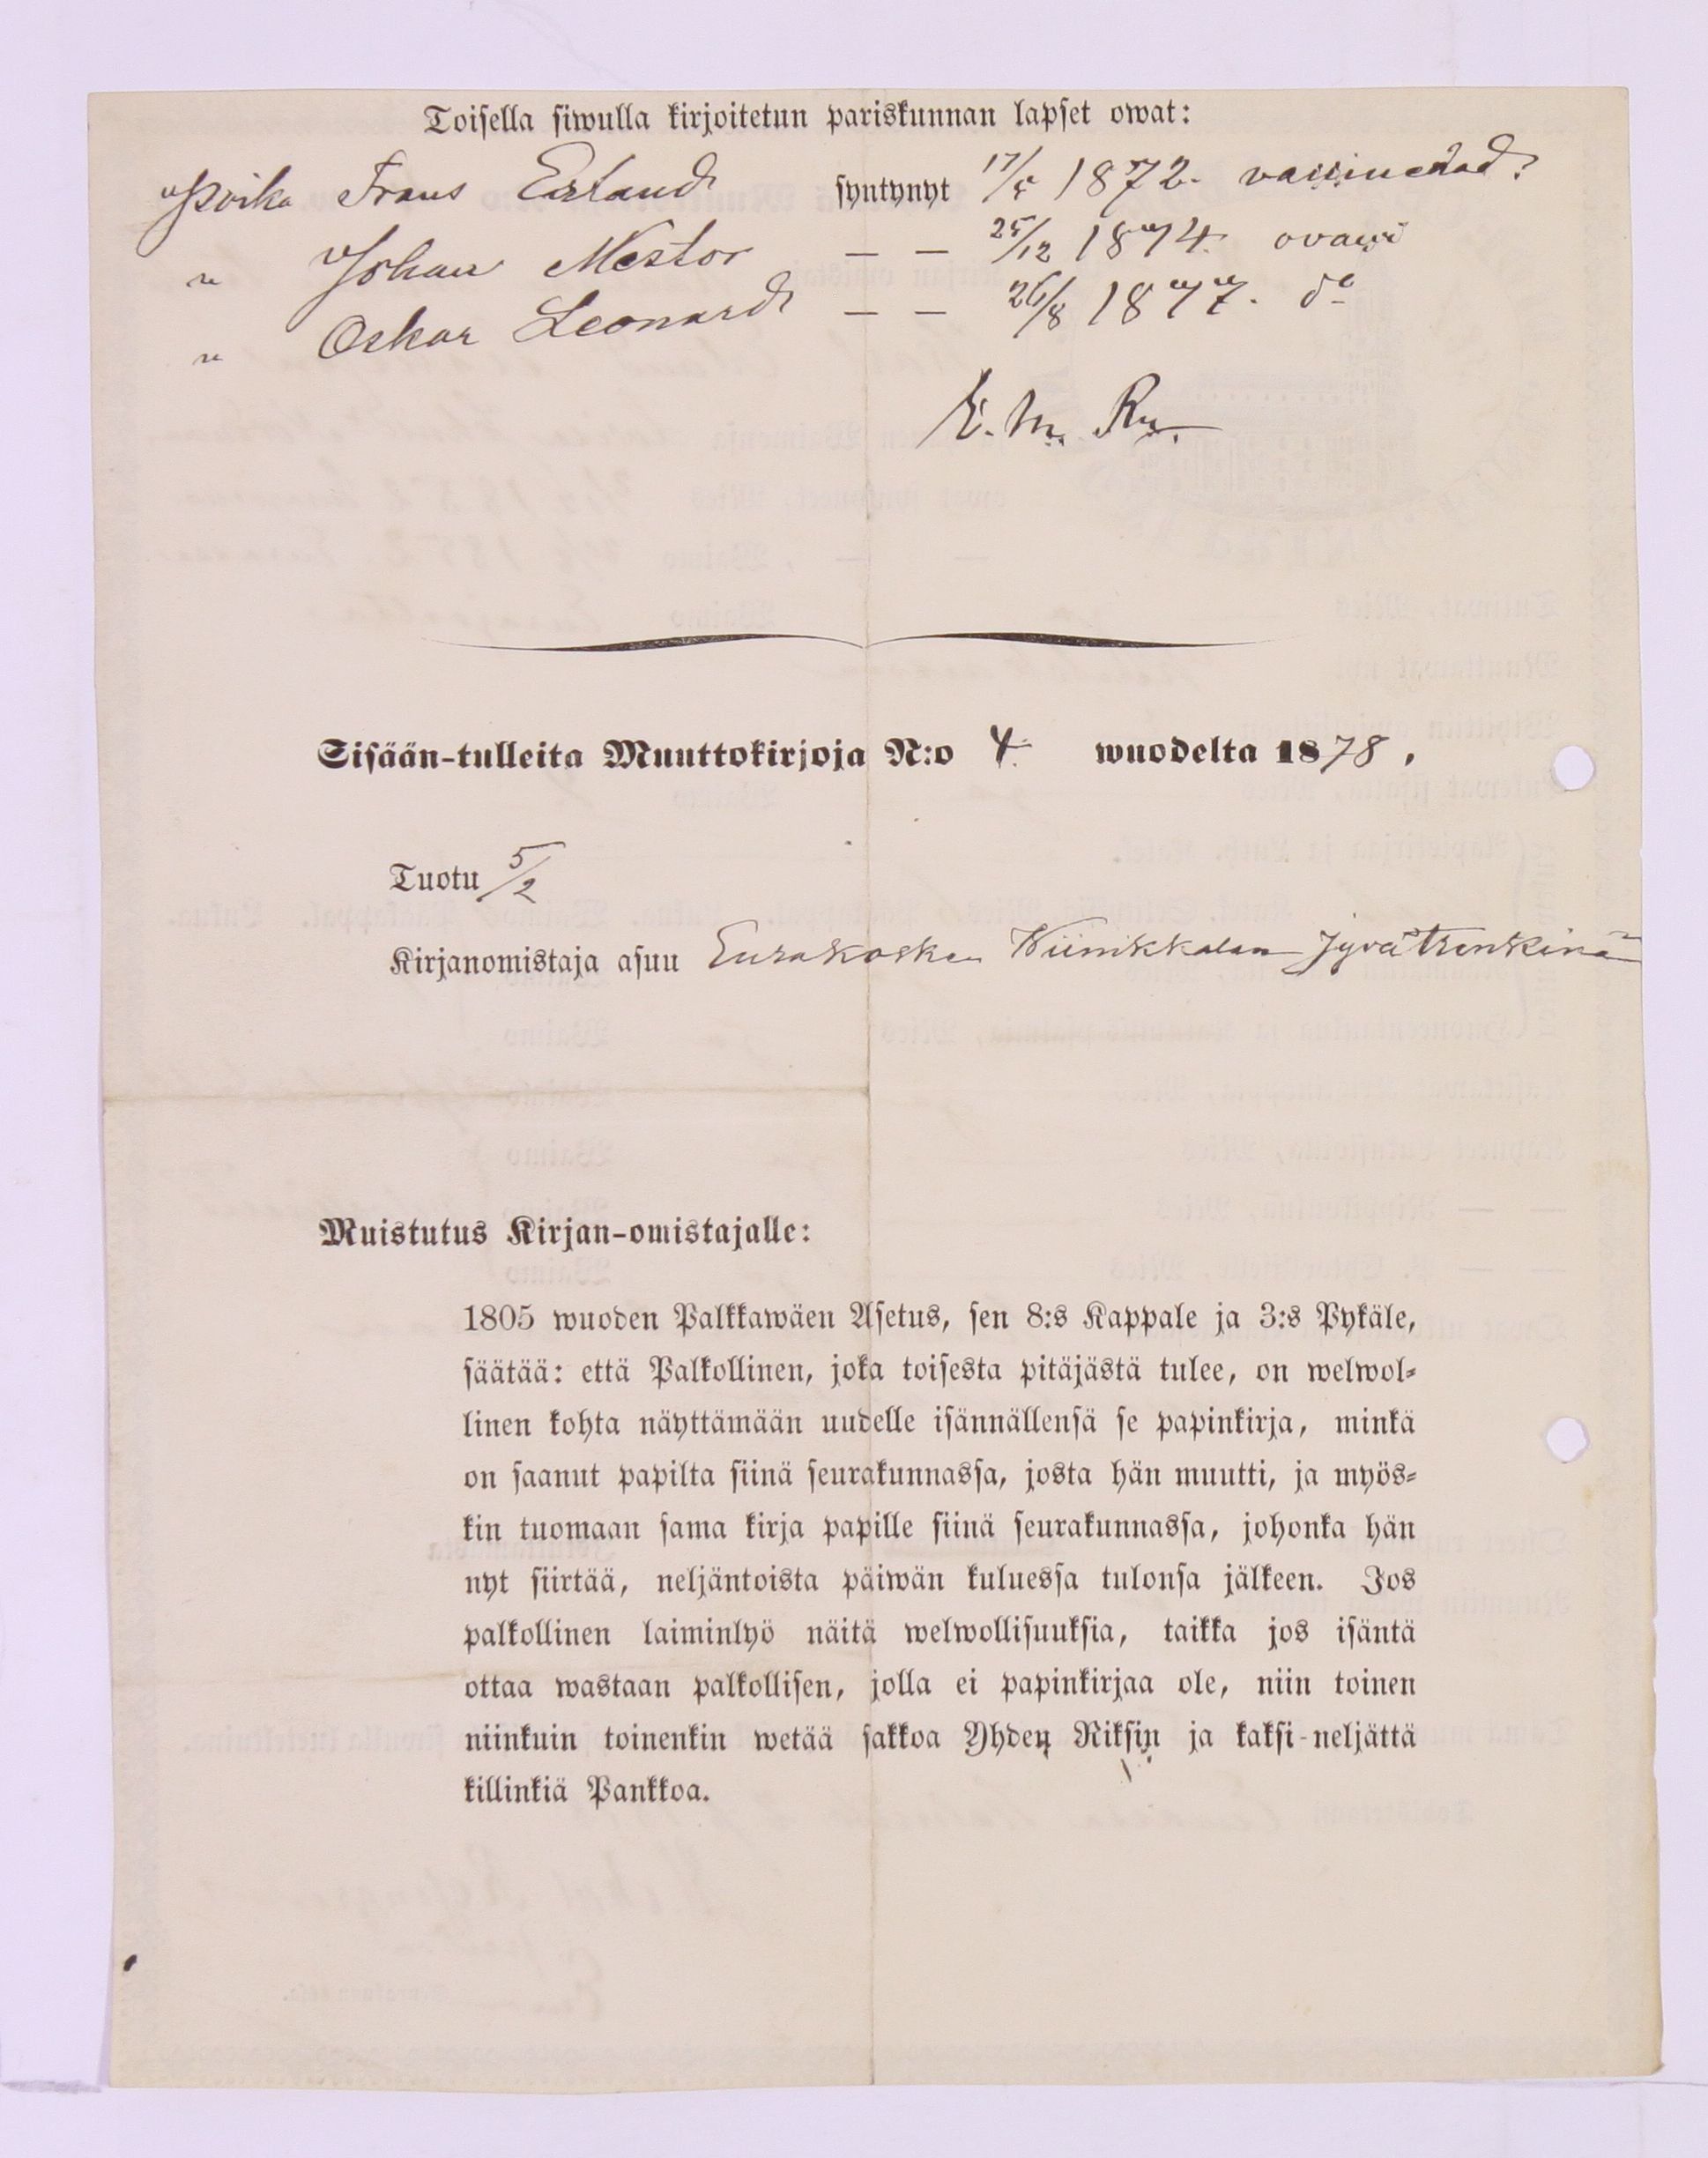 Toisella siwulla kirjoitetun pariskunnan lapset owat:
Poika Frans Erland syntynyt 17/5 1872. vaccinerad.
" Johan Nestor — — 25/12 1874. ovacci
" Oskar Leonard — — 26/8 1877. do
Sisään-tulleita Muuttokirjoja N:o 4. wuodelta 1878.
Tuotu 5/2
Kirjanomistaja asuu Eurakosken Wiinikkalan Jyvätrenkinä
Muistutus Kirjan-omistajalle:
1805 wuoden Palkkawäen Asetus, sen 8:s Kappale ja 3:s Pykäle,
säätää: että Palkollinen, joka toisesta pitäjästä tulee, on welwol-
linen kohta näyttämään uudelle isännällensä se papinkirja, minkä
on saanut papilta siinä seurakunnassa, josta hän muutti, ja myös-
kin tuomaan sama kirja papille siinä seurakunnassa, johonka hän
nyt siirtää, neljäntoista päiwän kuluessa tulonsa jälkeen. Jos
palkollinen laiminlyö näitä welwollisuuksia, taikka jos isäntä
ottaa wastaan palkollisen, jolla ei papinkirjaa ole, niin toinen
niinkuin toinenkin wetää sakkoa Yhden Riksin ja kaksi-neljättä
killinkiä Pankkoa.